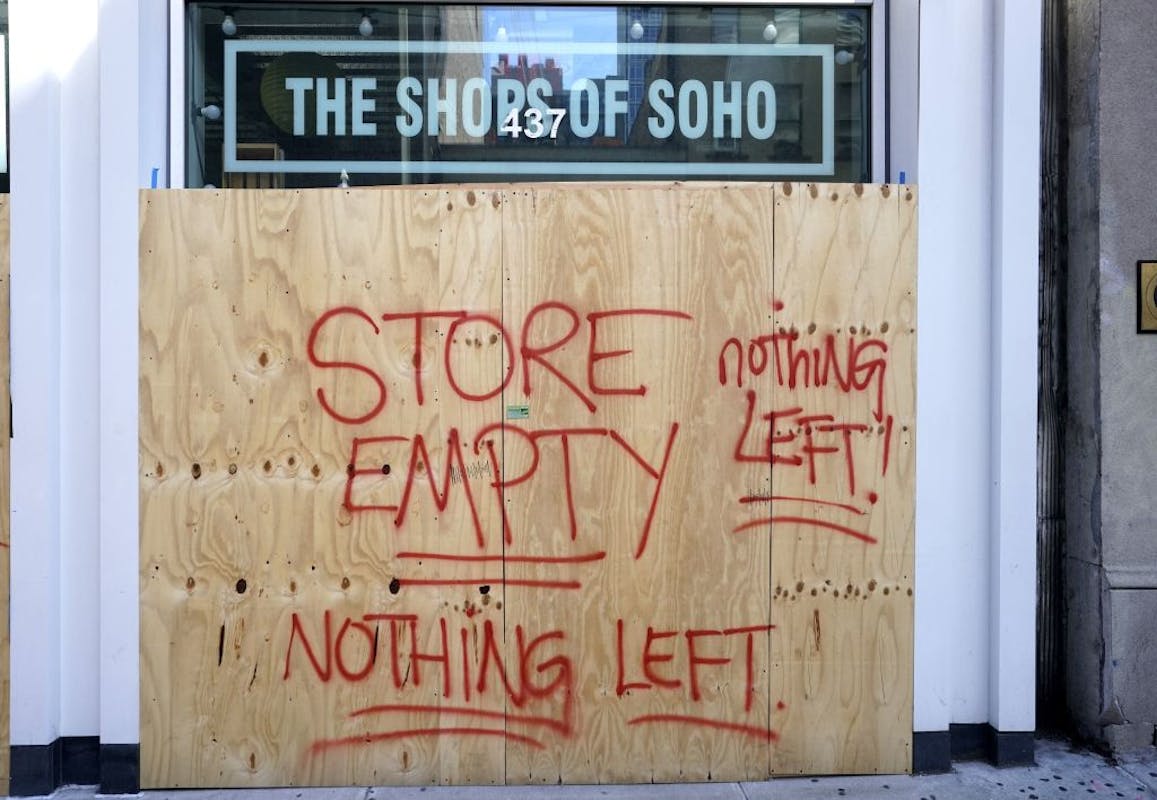 THE SHOPS OF SOHO
437
STORE
EMPTY
NOTHiNG LEFT.
nOThiNG
LEFT!